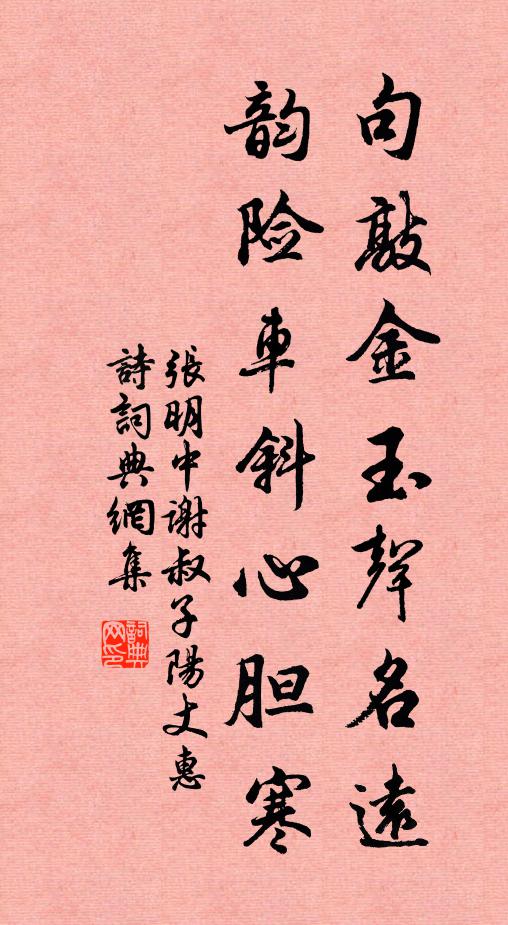 句敲金玉聲名遠
韵险車斜心胆寒
張明中谢叔子陽丈惠
詩詞典網集
詞典網印